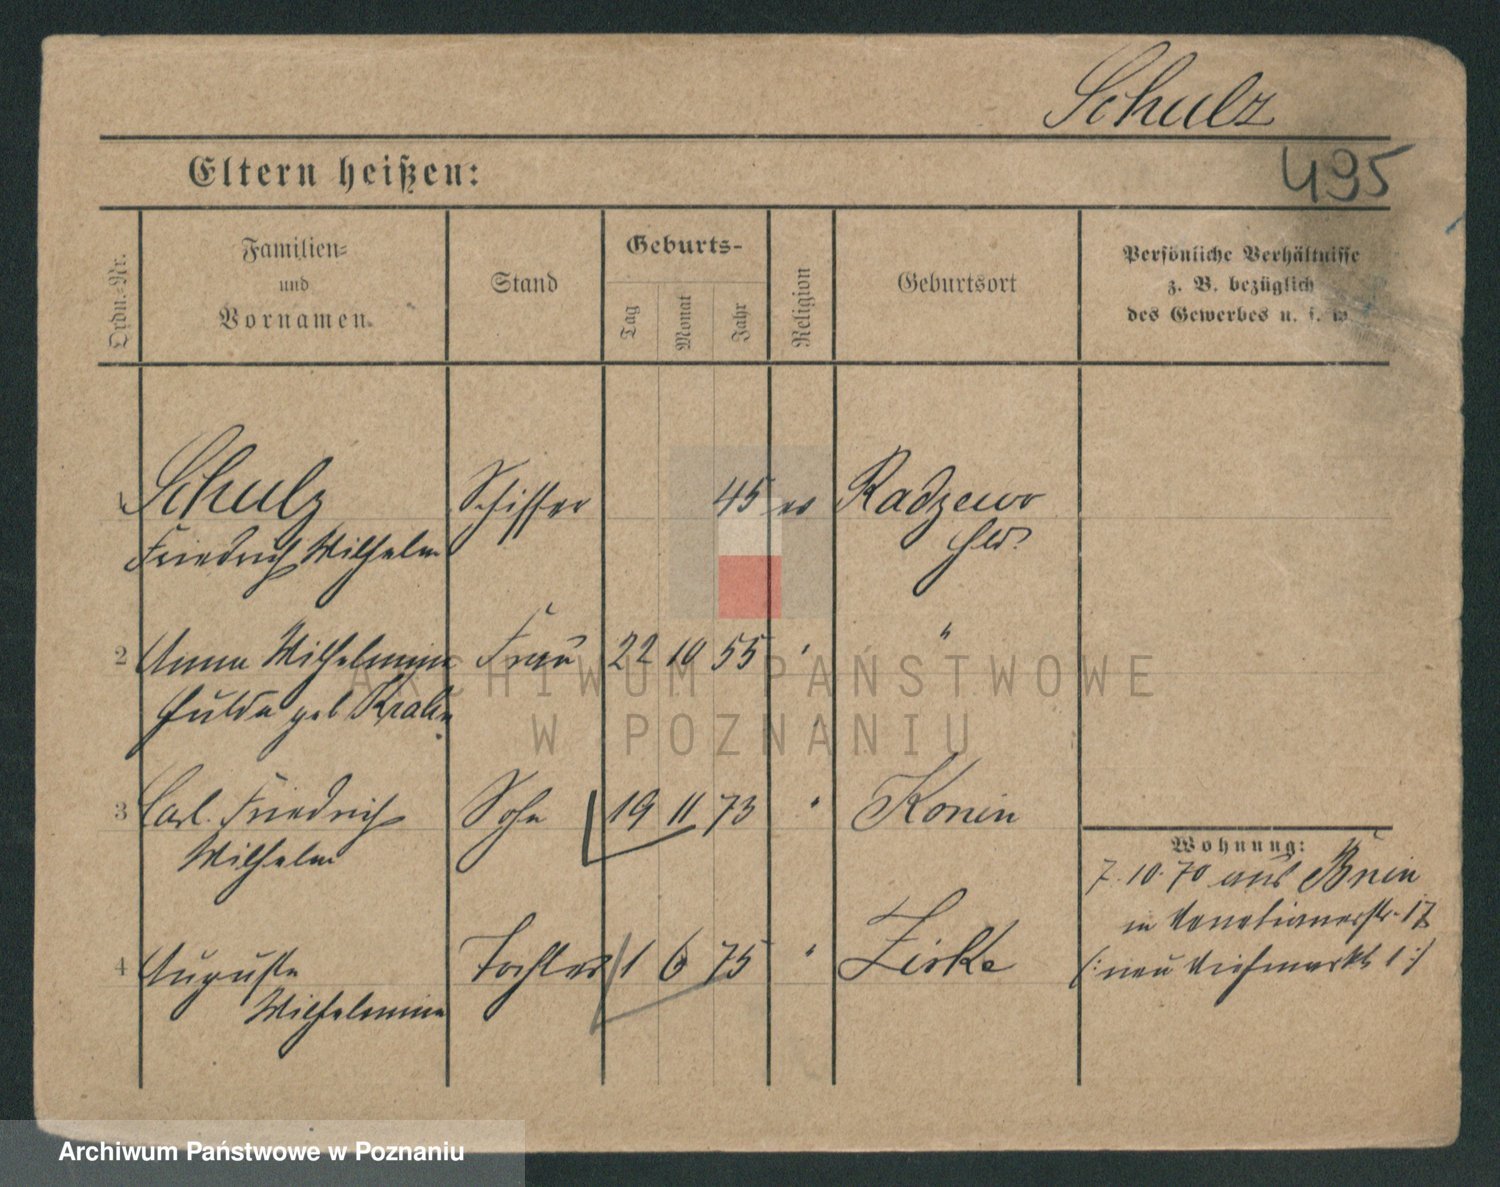 Schulz
495
Eltern heißen:
Ordn.-Nr.
Familien-
und
Vornamen.
Stand
Geburts-
Tag
Monat
Jahr
Religion
Geburtsort
Persönliche Verhältnisse
z. B. bezüglich
des Gewerbes u. s. w.
1 Schulz Schiffer 45 ev Radzewo
Friedrich Wilhelm Hld.
2 Anna Wilhelmine Frau 22 10 55 " "
Hulda geb
3 Carl Friedrich Sohn 19 11 73 " Konin
Wilhelm
4 Auguste Tochter 1 6 75 " Zirke
Wilhelmine
Wohnung:
7. 10. 70 aus Bnin
in Venetianerstr. 17
(: neu Viehmarkt 1 :)
ARCHIWUM PAŃSTWOWE
W POZNANIU
Archiwum Państwowe w Poznaniu